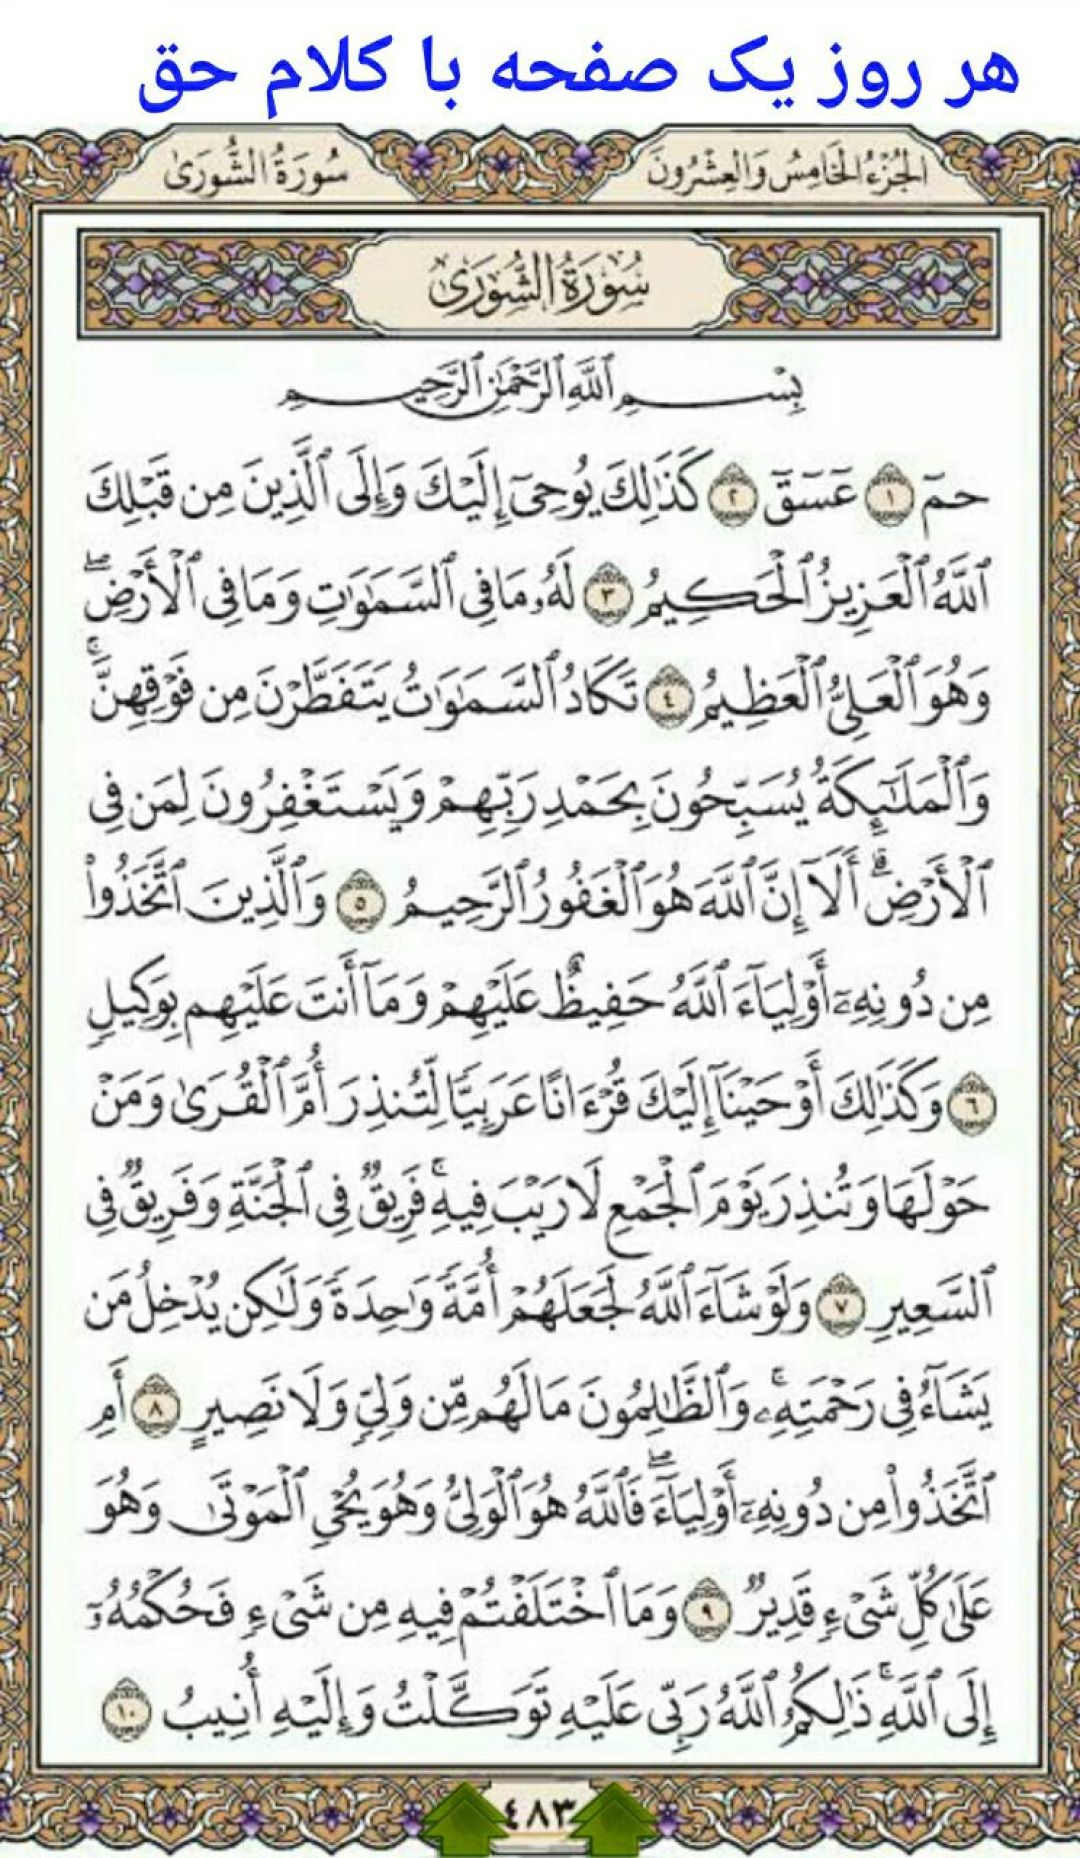 هر روز یک صفحه با کلام حق
الجُزْءُ الخَامِسُ وَالعِشْرُونَ
سُورَةُ الشُّورَىٰ
سُورَةُ الشُّورَىٰ
بِسْمِ ٱللَّهِ ٱلرَّحْمَٰنِ ٱلرَّحِيمِ
حمٓ ١ عٓسٓقٓ ٢ كَذَٰلِكَ يُوحِىٓ إِلَيْكَ وَإِلَى ٱلَّذِينَ مِن قَبْلِكَ
ٱللَّهُ ٱلْعَزِيزُ ٱلْحَكِيمُ ٣ لَهُۥ مَا فِى ٱلسَّمَٰوَٰتِ وَمَا فِى ٱلْأَرْضِۖ
وَهُوَ ٱلْعَلِىُّ ٱلْعَظِيمُ ٤ تَكَادُ ٱلسَّمَٰوَٰتُ يَتَفَطَّرْنَ مِن فَوْقِهِنَّۚ
وَٱلْمَلَٰٓئِكَةُ يُسَبِّحُونَ بِحَمْدِ رَبِّهِمْ وَيَسْتَغْفِرُونَ لِمَن فِى
ٱلْأَرْضِۗ أَلَآ إِنَّ ٱللَّهَ هُوَ ٱلْغَفُورُ ٱلرَّحِيمُ ٥ وَٱلَّذِينَ ٱتَّخَذُوا۟
مِن دُونِهِۦٓ أَوْلِيَآءَ ٱللَّهُ حَفِيظٌ عَلَيْهِمْ وَمَآ أَنتَ عَلَيْهِم بِوَكِيلٍ
٦ وَكَذَٰلِكَ أَوْحَيْنَآ إِلَيْكَ قُرْءَانًا عَرَبِيًّا لِّتُنذِرَ أُمَّ ٱلْقُرَىٰ وَمَنْ
حَوْلَهَا وَتُنذِرَ يَوْمَ ٱلْجَمْعِ لَا رَيْبَ فِيهِۚ فَرِيقٌ فِى ٱلْجَنَّةِ وَفَرِيقٌ فِى
ٱلسَّعِيرِ ٧ وَلَوْ شَآءَ ٱللَّهُ لَجَعَلَهُمْ أُمَّةً وَٰحِدَةً وَلَٰكِن يُدْخِلُ مَن
يَشَآءُ فِى رَحْمَتِهِۦۚ وَٱلظَّٰلِمُونَ مَا لَهُم مِّن وَلِىٍّ وَلَا نَصِيرٍ ٨ أَمِ
ٱتَّخَذُوا۟ مِن دُونِهِۦٓ أَوْلِيَآءَۖ فَٱللَّهُ هُوَ ٱلْوَلِىُّ وَهُوَ يُحْىِ ٱلْمَوْتَىٰ وَهُوَ
عَلَىٰ كُلِّ شَىْءٍ قَدِيرٌ ٩ وَمَا ٱخْتَلَفْتُمْ فِيهِ مِن شَىْءٍ فَحُكْمُهُۥٓ
إِلَى ٱللَّهِۚ ذَٰلِكُمُ ٱللَّهُ رَبِّى عَلَيْهِ تَوَكَّلْتُ وَإِلَيْهِ أُنِيبُ ١٠
٤٨٣